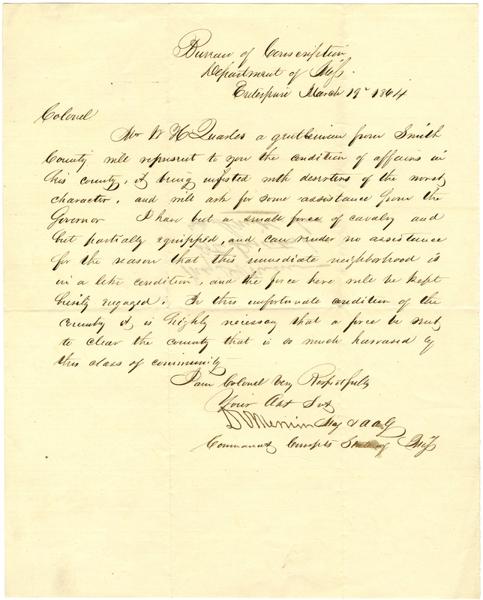 Bureau of Conscription
Department of Miss.
Enterprise March 19" 1864
Colonel
Mr W H Quarles a gentleman from Smith
County will represent to you the condition of affairs in
his county, it being infested with deserters of the worst
character, and will ask for some assistance from the
Governor I have but a small force of cavalry and
but partially equipped, and can render no assistance
for the reason that this immediate neighborhood is
in a like condition, and the force here will be kept
busily engaged. In this unfortunate condition of the
country it is highly necessary that a force be sent
to clear the county that is so much harrased by
this class of community
I am Colonel Very Respectfully
Your Obt Svt
Maj & AAG
Commandt Conscpts State of Miss